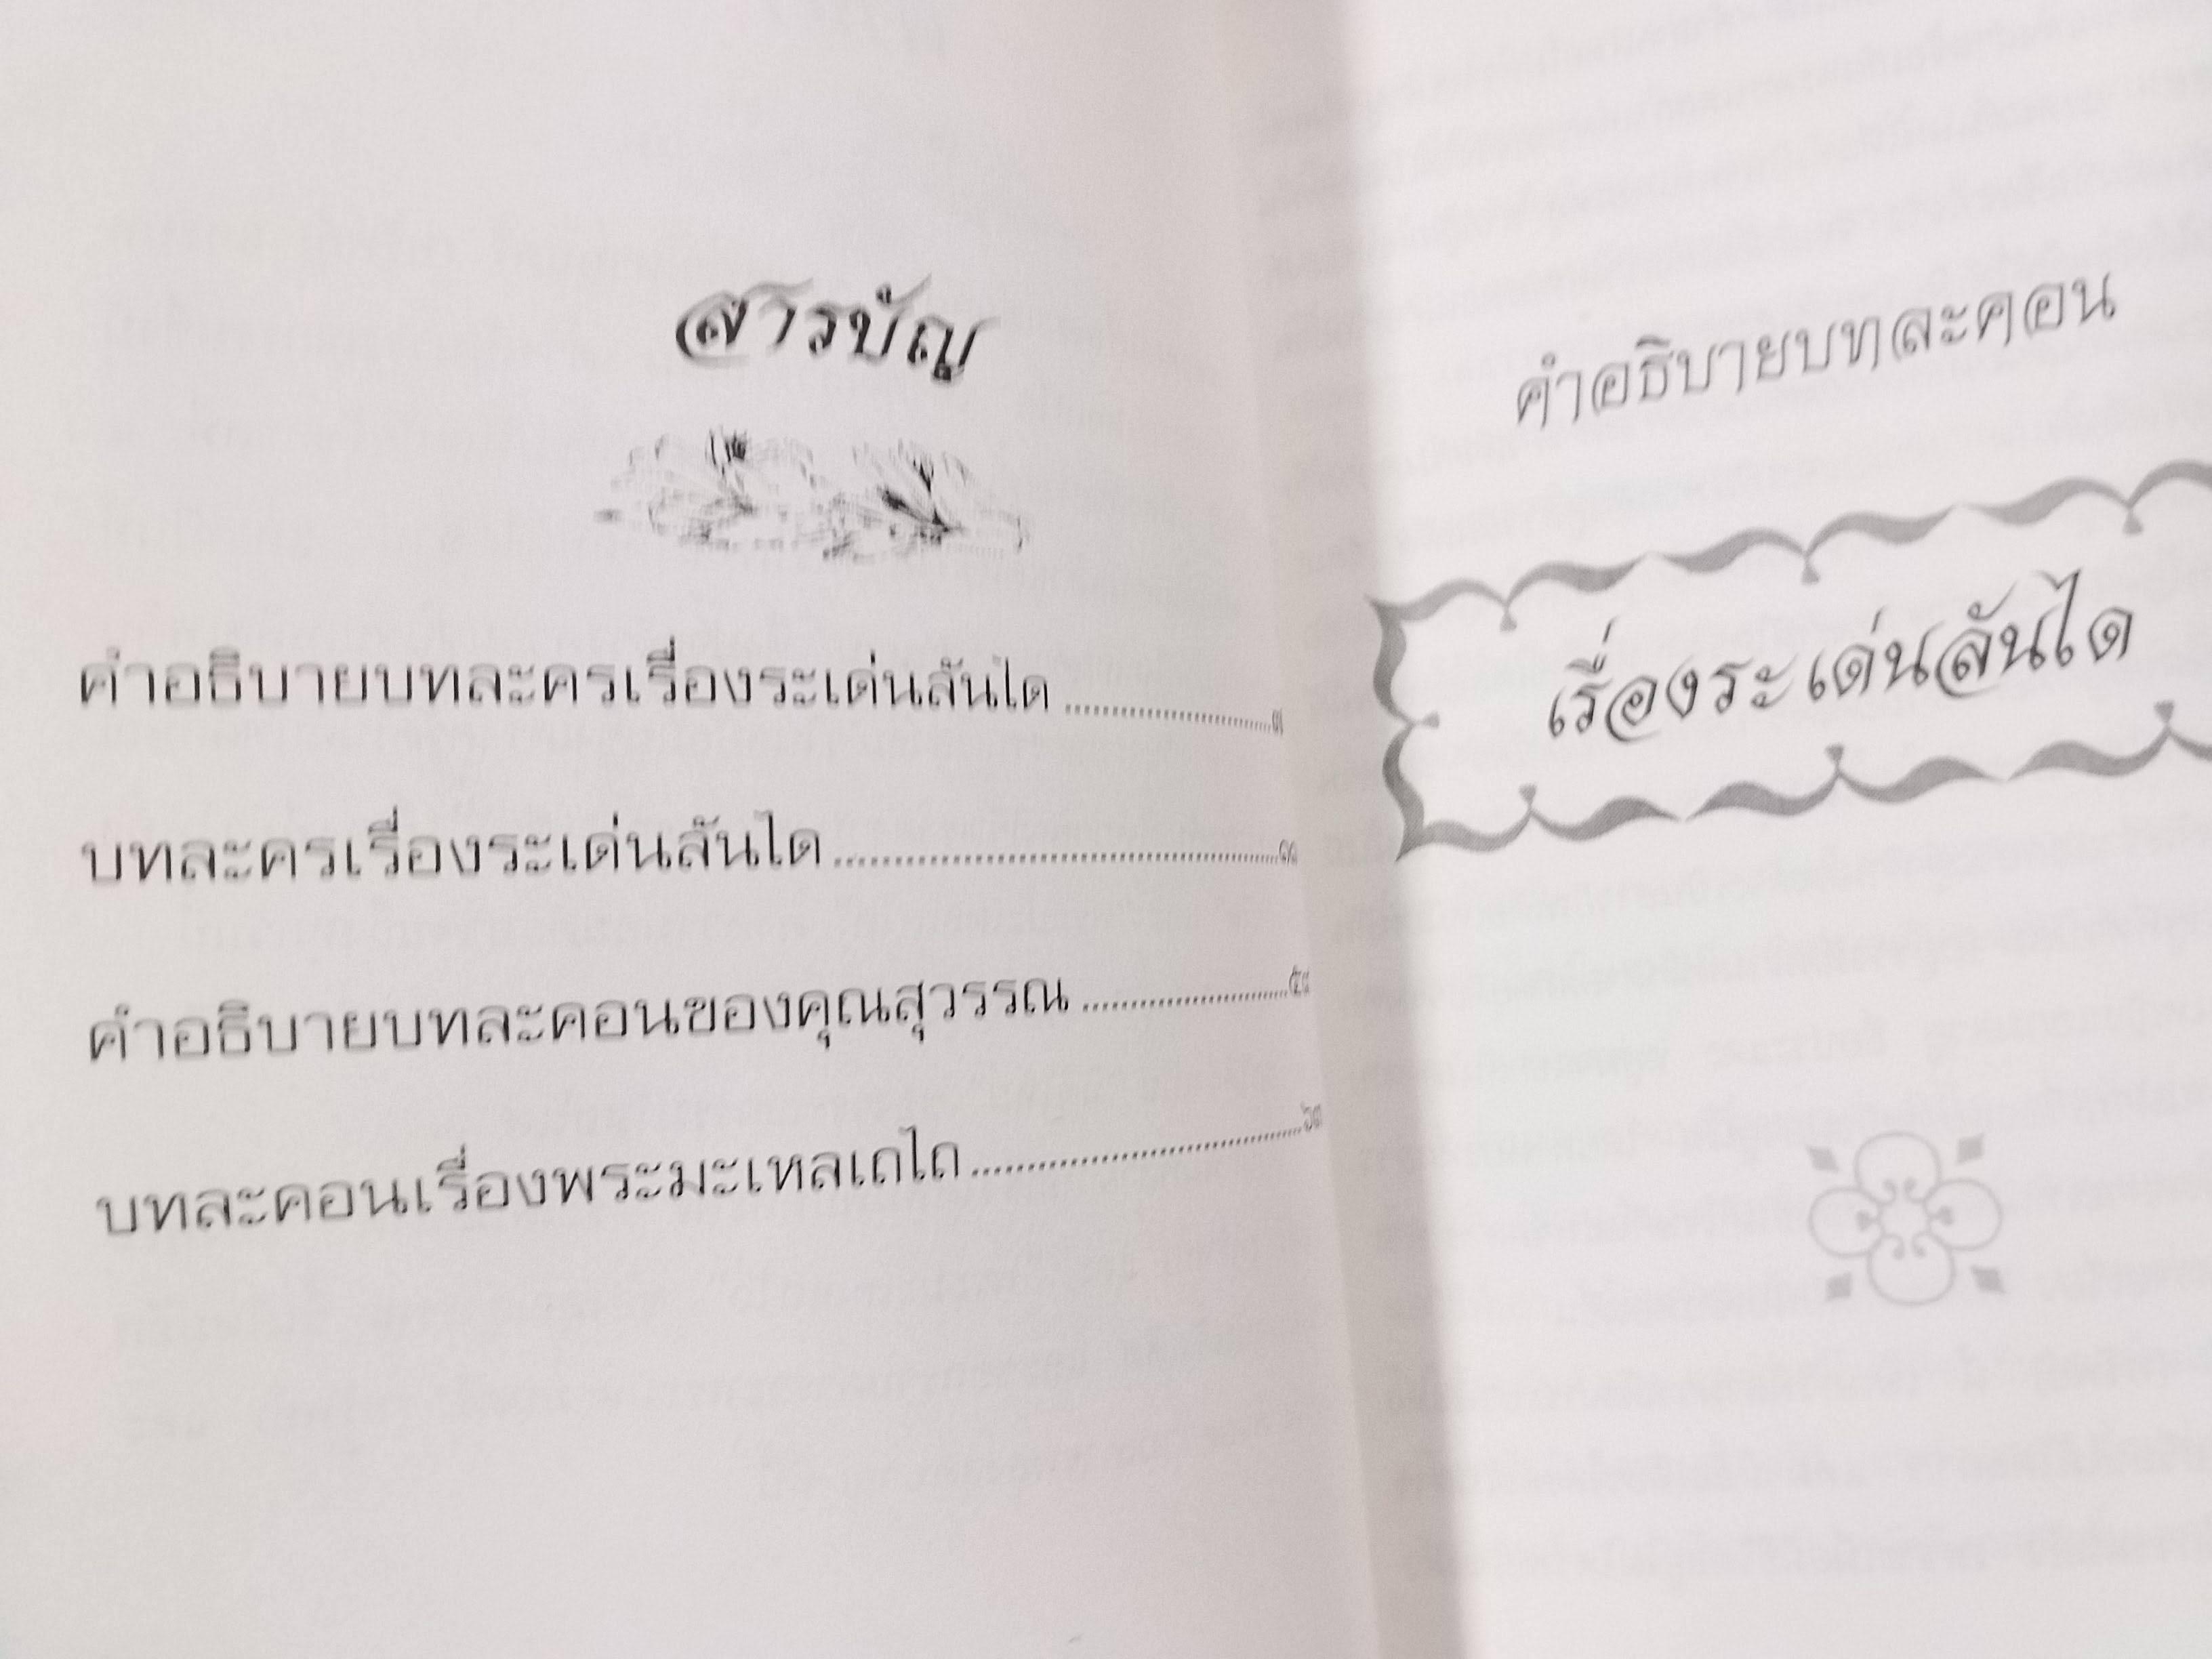 สารบัญ
คำอธิบายบทละครเรื่องระเด่นลันได
บทละครเรื่องระเด่นลันได
คำอธิบายบทละคอนของคุณสุวรรณ
บทละคอนเรื่องพระมะเหลเถไถ
คำอธิบายบทละคอน
เรื่องระเด่นลันได